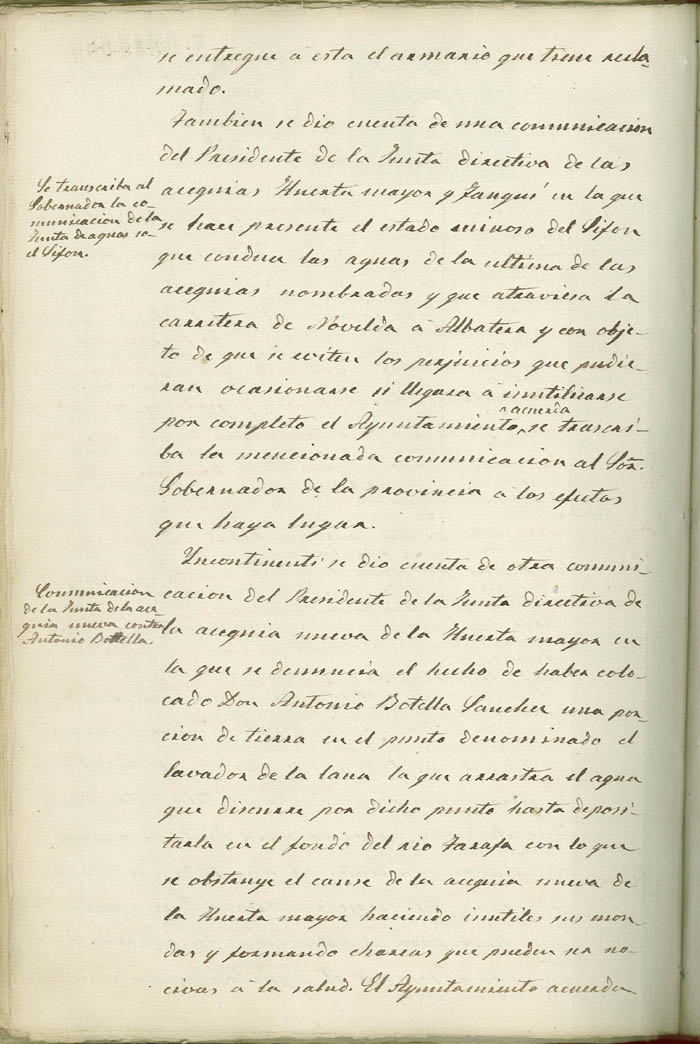 se entregue á esta el armario que tiene recla-
mado.
Tambien se dio cuenta de una comunicacion
del Presidente de la Junta directiva de las
acequias Huerta mayor y Fangus' en la que
se hace presente el estado ruinoso del Sifon
que conduce las aguas de la ultima de las
acequias nombradas y que atraviesa la
carretera de Novelda á Albatera y con obje-
to de que se eviten los perjuicios que pudie-
ran ocasionarse si llegara á inutilizarse
por completo el Ayuntamiento acuerda se trascri-
ba la mencionada comunicacion al Sôr.
Gobernador de la provincia á los efectos
que haya lugar.
Se transcriba al
Gobernador la co-
municacion de la
Junta de aguas so-
el Sifon.
Yncontinenti se dio cuenta de otra comuni-
cacion del Presidente de la Junta directiva de
la acequia nueva de la Huerta mayor en
la que se denuncia el hecho de haber colo-
cado Don Antonio Botella Sanchez una por-
cion de tierra en el punto denominado el
lavador de la lana la que arrastra el agua
que discurre por dicho punto hasta deposi-
tarla en el fondo del rio Tarafa con lo que
se obstruye el cause de la acequia nueva de
la Huerta mayor haciendo inutiles sus mon-
das y formando charcas que pueden ser no-
civas á la salud. El Ayuntamiento acuerda
Comunicacion
de la Junta de la ace-
quia nueva contra
Antonio Botella.